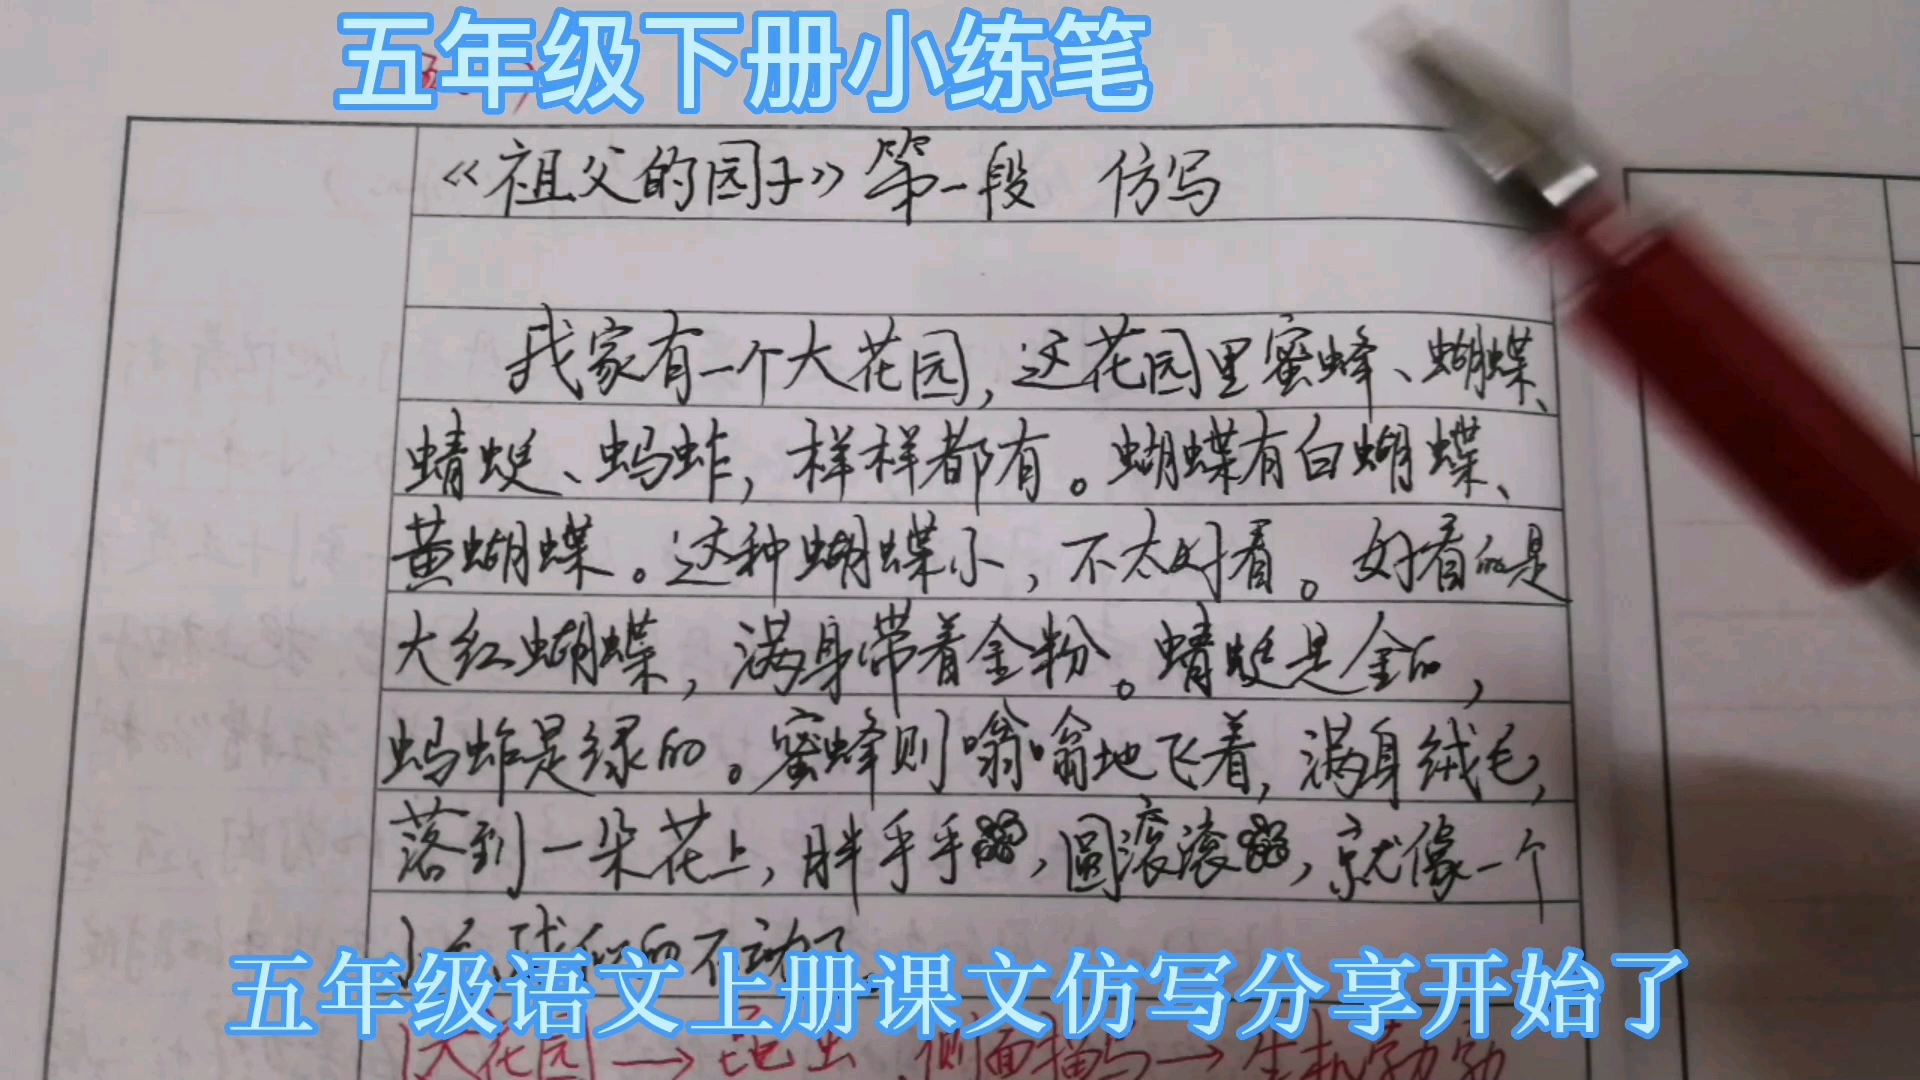 五年级下册小练笔
《祖父的园子》第一段 仿写
我家有一个大花园,这花园里蜜蜂、蝴蝶、
蜻蜓、蚂蚱,样样都有。蝴蝶有白蝴蝶、
黄蝴蝶。这种蝴蝶小,不太好看。好看的是
大红蝴蝶,满身带着金粉。蜻蜓是金的,
蚂蚱是绿的。蜜蜂则嗡嗡地飞着,满身绒毛,
落到一朵花上,胖乎乎,圆滚滚,就像一个
小毛球似的不动了。
五年级语文上册课文仿写分享开始了
大花园→昆虫 侧面描写→生机勃勃